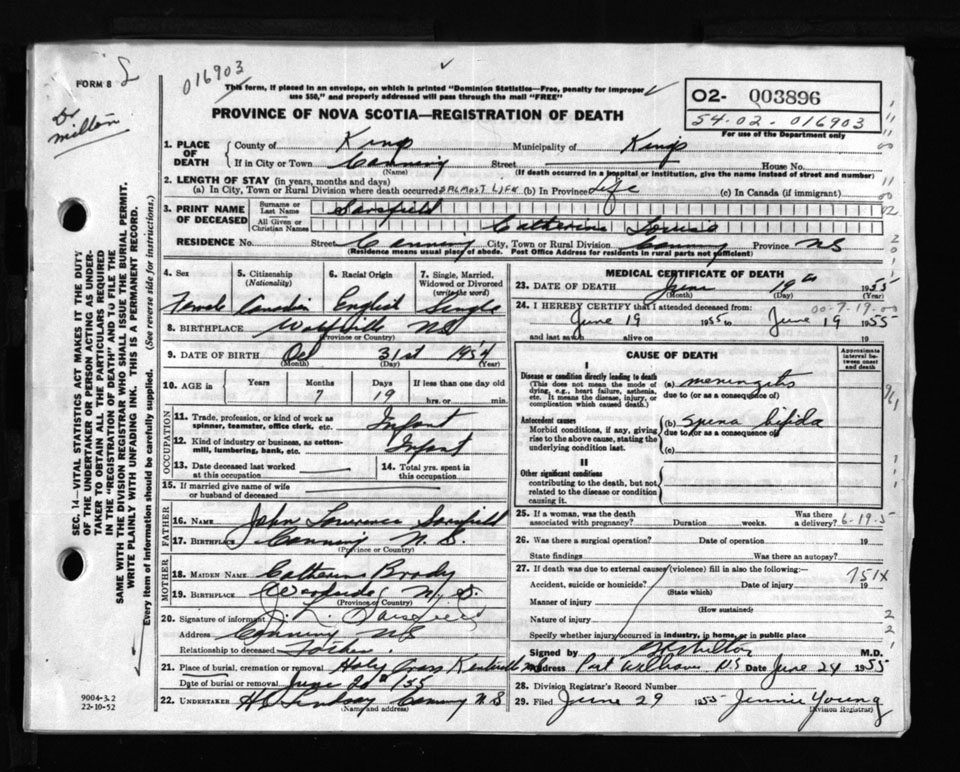 FORM 8
016903
Dr Milton
This form, if placed in an envelope, on which is printed "Dominion Statistics—Free, penalty for improper use $50," and properly addressed will pass through the mail "FREE"
PROVINCE OF NOVA SCOTIA—REGISTRATION OF DEATH
O2- 003896
54-02-016903
For use of the Department only
1. PLACE OF DEATH
County of Kings Municipality of Kings
If in City or Town Canning Street House No.
(Name) (If death occurred in a hospital or institution, give the name instead of street and number)
2. LENGTH OF STAY (in years, months and days)
(a) In City, Town or Rural Division where death occurred ALMOST LIFE (b) In Province Life (c) In Canada (if immigrant)
3. PRINT NAME OF DECEASED
Surname or Last Name Sarsfield
All Given or Christian Names Catherine Louise
RESIDENCE No. Street Canning City, Town or Rural Division Canning Province NS
(Residence means usual place of abode. Post Office Address for residents in rural parts not sufficient)
4. Sex Female
5. Citizenship (Nationality) Canadian
6. Racial Origin English
7. Single, Married, Widowed or Divorced (write the word) Single
8. BIRTHPLACE Wolfville NS
(Province or Country)
9. DATE OF BIRTH Oct 31st 1954
(Month) (Day)
10. AGE in Years Months 7 Days 19 If less than one day old hrs. or min.
OCCUPATION
11. Trade, profession, or kind of work as spinner, teamster, office clerk, etc. Infant
12. Kind of industry or business, as cotton-mill, lumbering, bank, etc. Infant
13. Date deceased last worked at this occupation
14. Total yrs. spent in this occupation
15. If married give name of wife or husband of deceased
FATHER
16. NAME John Lawrence Sarsfield
17. BIRTHPLACE Canning N.S.
(Province or Country)
MOTHER
18. MAIDEN NAME Catherine Brody
19. BIRTHPLACE N.S.
(Province or Country)
20. Signature of informant J. L. Sarsfield
Address Canning NS
Relationship to deceased Father
21. Place of burial, cremation or removal Holy Cross Kentville NS
Date of burial or removal June 20th 55
22. UNDERTAKER H C Lindsay Canning N S
(Name and address)
MEDICAL CERTIFICATE OF DEATH
23. DATE OF DEATH June 19th 1955
(Month) (Day) (Year)
24. I HEREBY CERTIFY that I attended deceased from: 00-7-19-00
June 19 1955 to June 19 1955
and last saw alive on 19
CAUSE OF DEATH
Approximate interval between onset and death
I
Disease or condition directly leading to death
(This does not mean the mode of dying, e.g., heart failure, asthenia, etc. It means the disease, injury, or complication which caused death.)
(a) meningitis
due to (or as a consequence of)
Antecedent causes
Morbid conditions, if any, giving rise to the above cause, stating the underlying condition last.
(b) spina bifida
due to (or as a consequence of)
(c)
II
Other significant conditions
contributing to the death, but not related to the disease or condition causing it.
25. If a woman, was the death associated with pregnancy? Duration weeks. Was there a delivery? 6-19-5
26. Was there a surgical operation? Date of operation 19
State findings Was there an autopsy?
27. If death was due to external causes (violence) fill in also the following:
751X
Accident, suicide or homicide? Date of injury 19
(State which)
Manner of injury
(How sustained)
Nature of injury
Specify whether injury occurred in industry, in home, or in public place
Signed by Milton M.D.
Address Port Williams N.S Date June 24 1955
28. Division Registrar's Record Number
29. Filed June 29 1955 Jennie Young
(Division Registrar)
SEC. 14—VITAL STATISTICS ACT MAKES IT THE DUTY OF THE UNDERTAKER OR PERSON ACTING AS UNDERTAKER TO OBTAIN ALL THE PARTICULARS REQUIRED IN THE "REGISTRATION OF DEATH" AND TO FILE THE SAME WITH THE DIVISION REGISTRAR WHO SHALL ISSUE THE BURIAL PERMIT.
WRITE PLAINLY WITH UNFADING INK. THIS IS A PERMANENT RECORD.
Every item of information should be carefully supplied. (See reverse side for instructions.)
9004-3.2
22-10-52